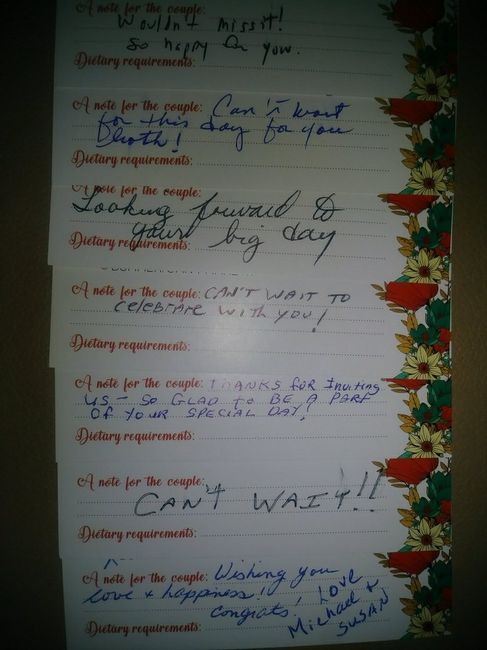 A note for the couple:
Wouldn't miss it!
So happy for you.
Dietary requirements:
A note for the couple: Can't wait
for this day for you
both!
Dietary requirements:
A note for the couple:
Looking forward to
your big day
Dietary requirements:
A note for the couple: CAN'T WAIT TO
celebrate with you!
Dietary requirements:
A note for the couple: THANKS FOR Inviting
US - SO GLAD to BE A PART
OF YOUR SPECIAL DAY!
Dietary requirements:
A note for the couple:
CAN'T WAIT!!
Dietary requirements:
A note for the couple: Wishing you
love + happiness!
congrats! Love
Michael +
SUSAN
Dietary requirements: